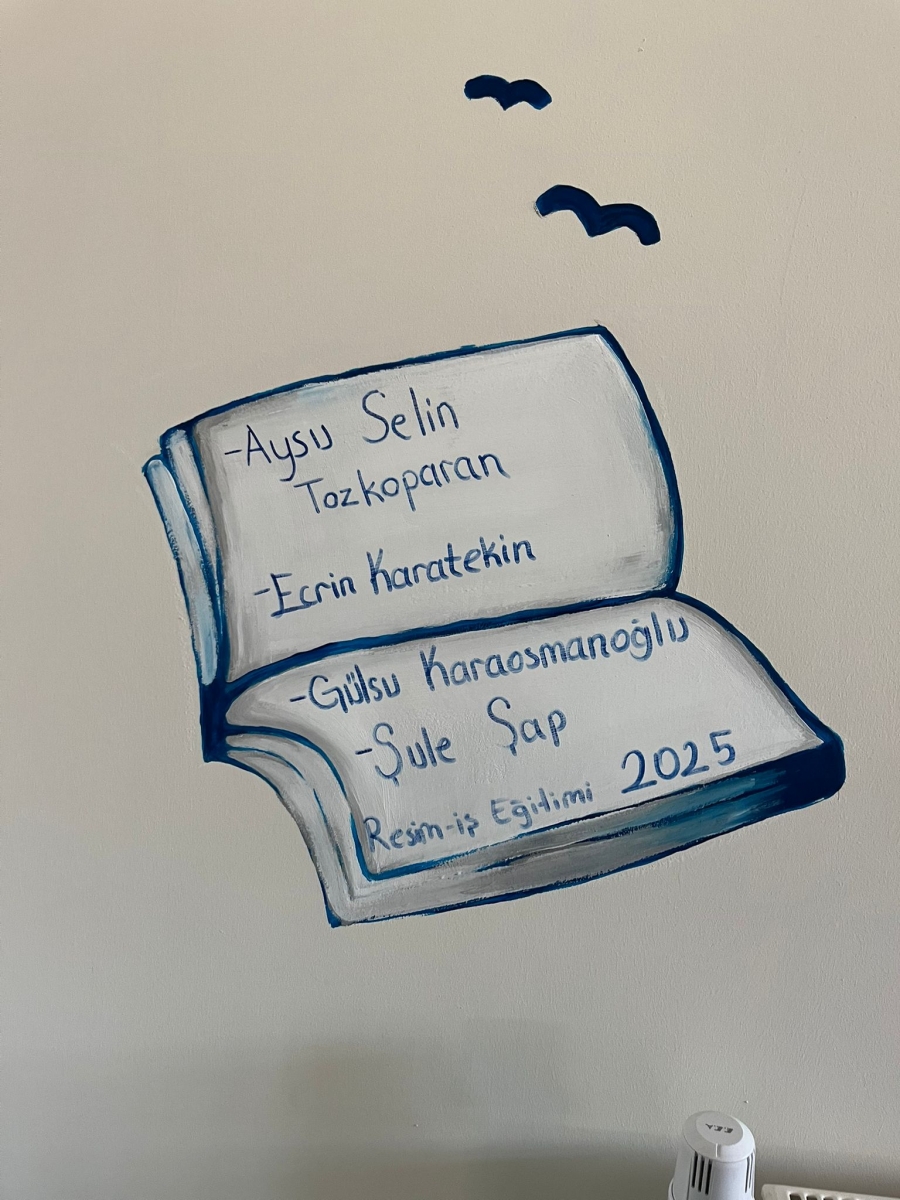 -Aysu Selin
Tozkoparan
-Ecrin Karatekin
-Gülsu Karaosmanoğlu
-Şule Şap
Resim-iş Eğitimi 2025